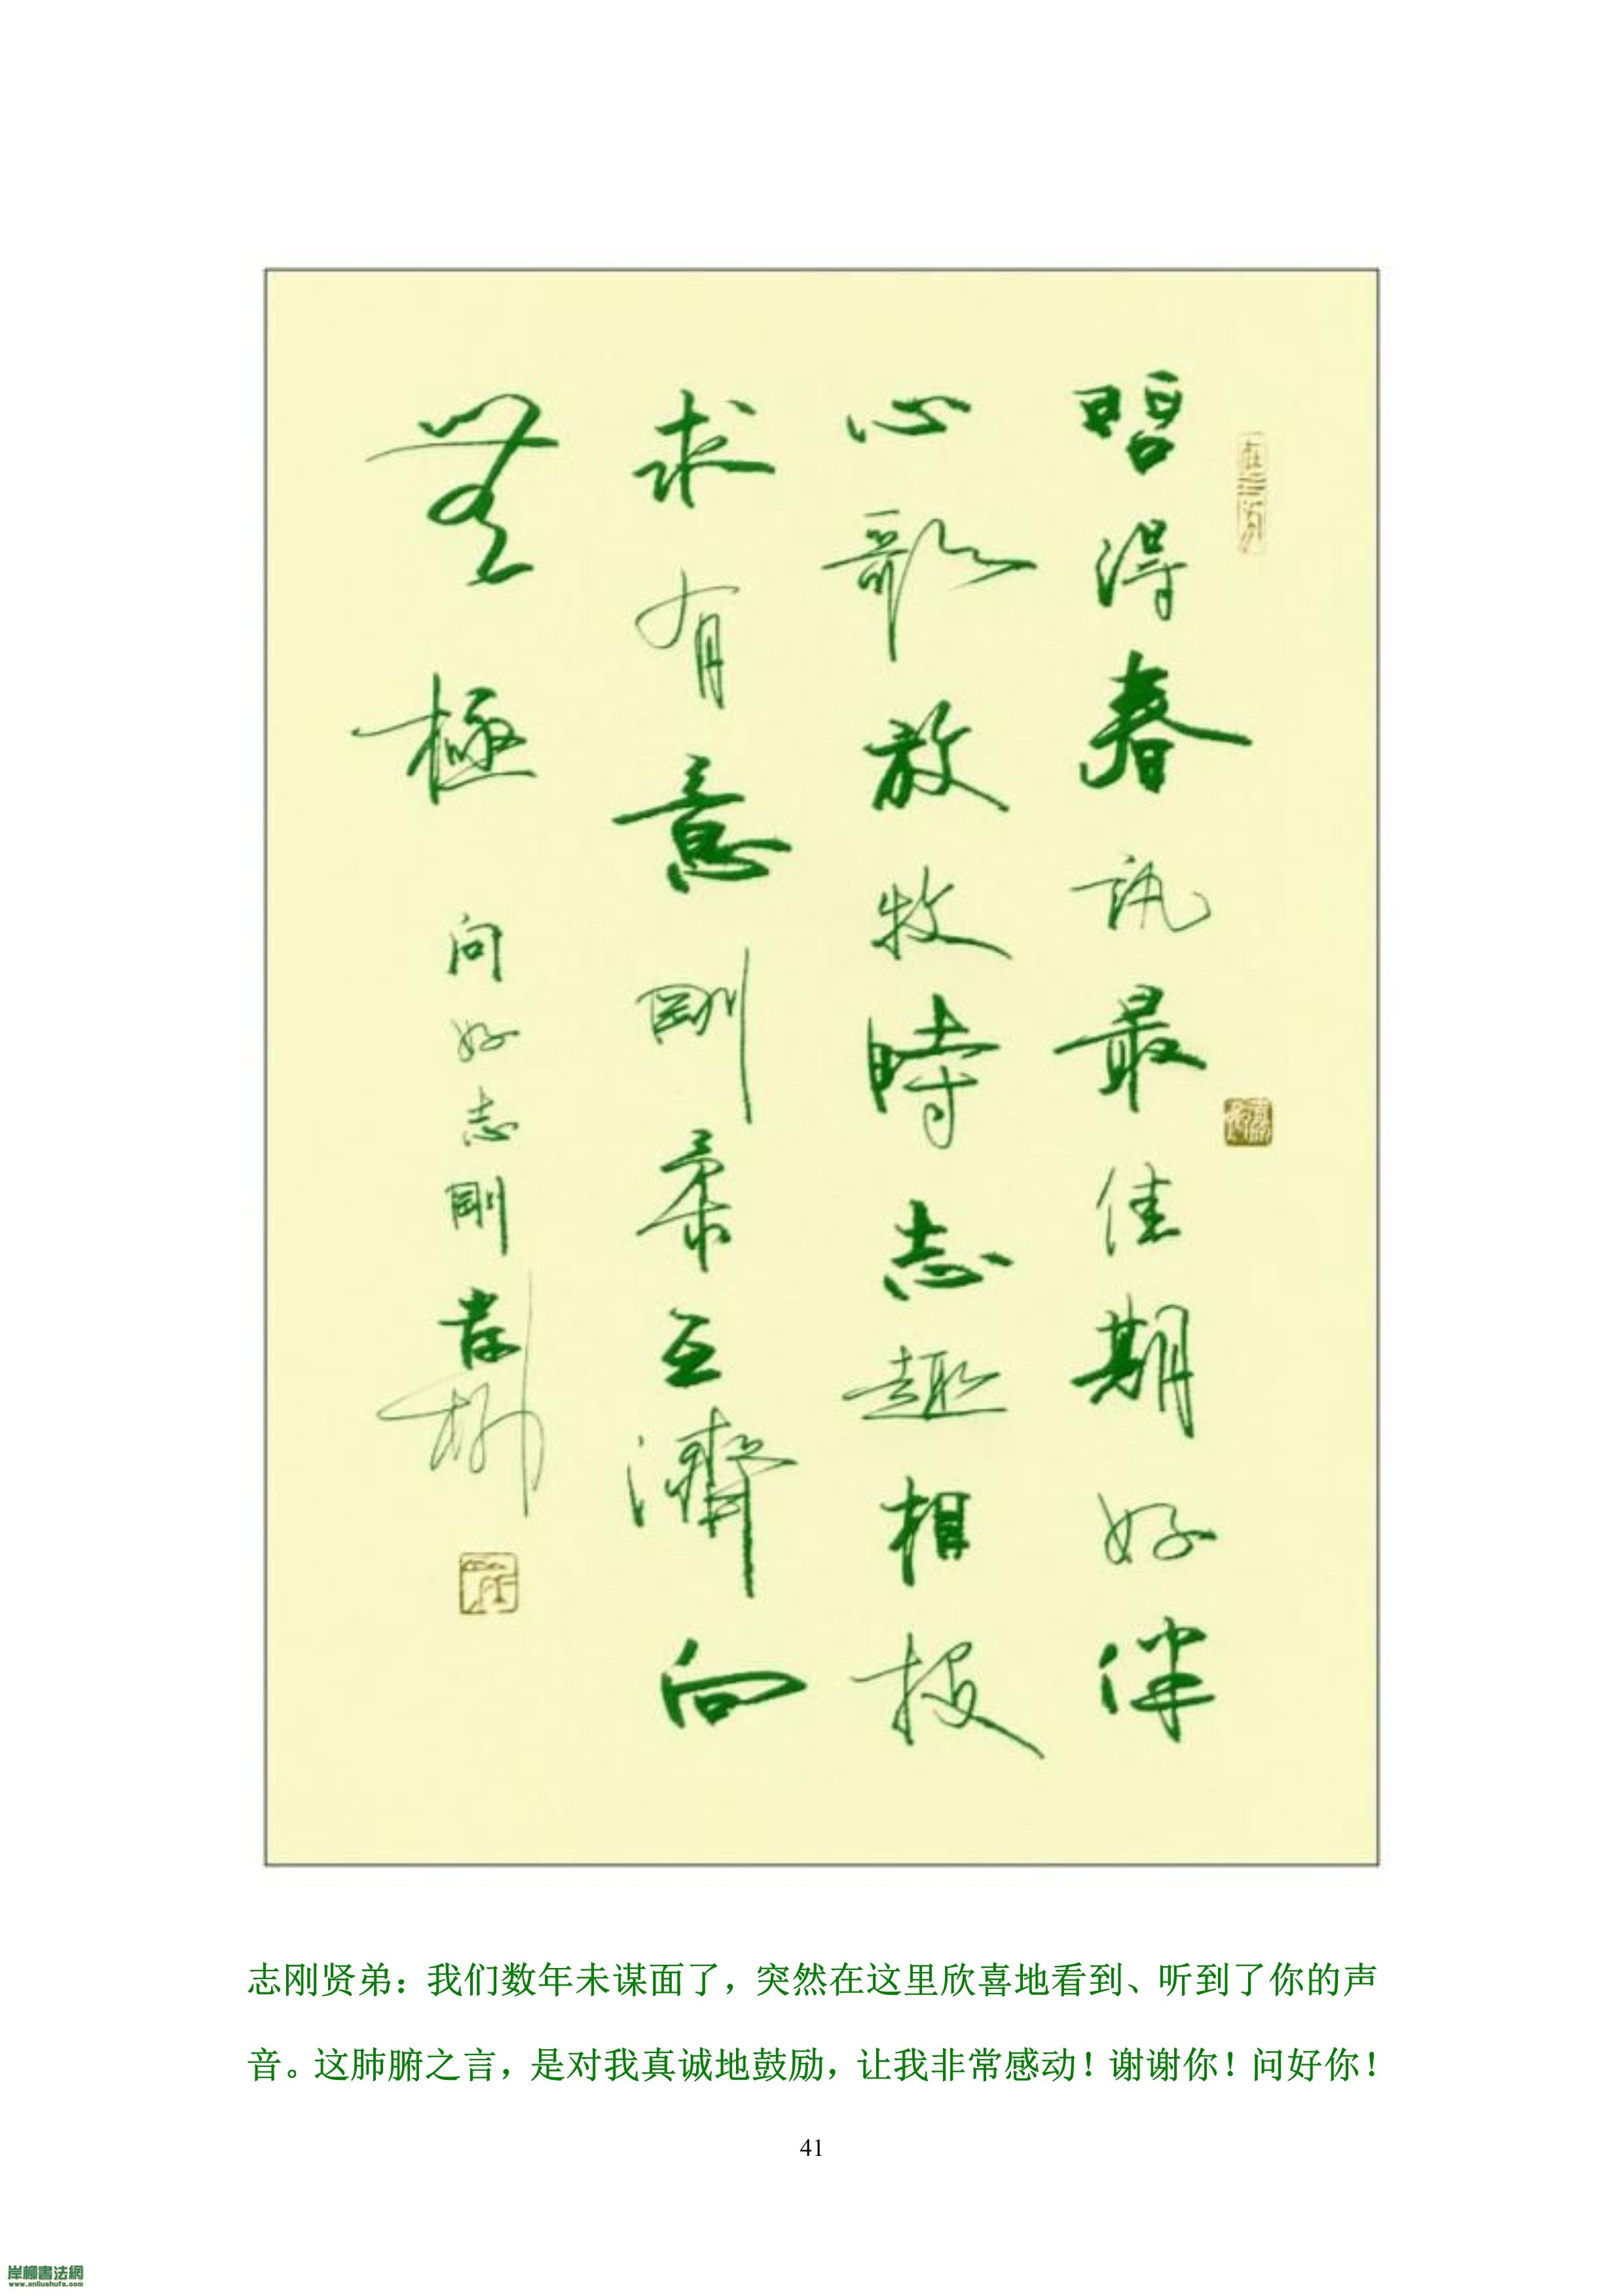 碧得春訊最佳期好伴
心歌放牧時志趣相投
求有意剛柔互濟向
無極
問好志剛 岸柳
志刚贤弟：我们数年未谋面了，突然在这里欣喜地看到、听到了你的声
音。这肺腑之言，是对我真诚地鼓励，让我非常感动！谢谢你！问好你！
41
岸柳書法網
www.anliushufa.com